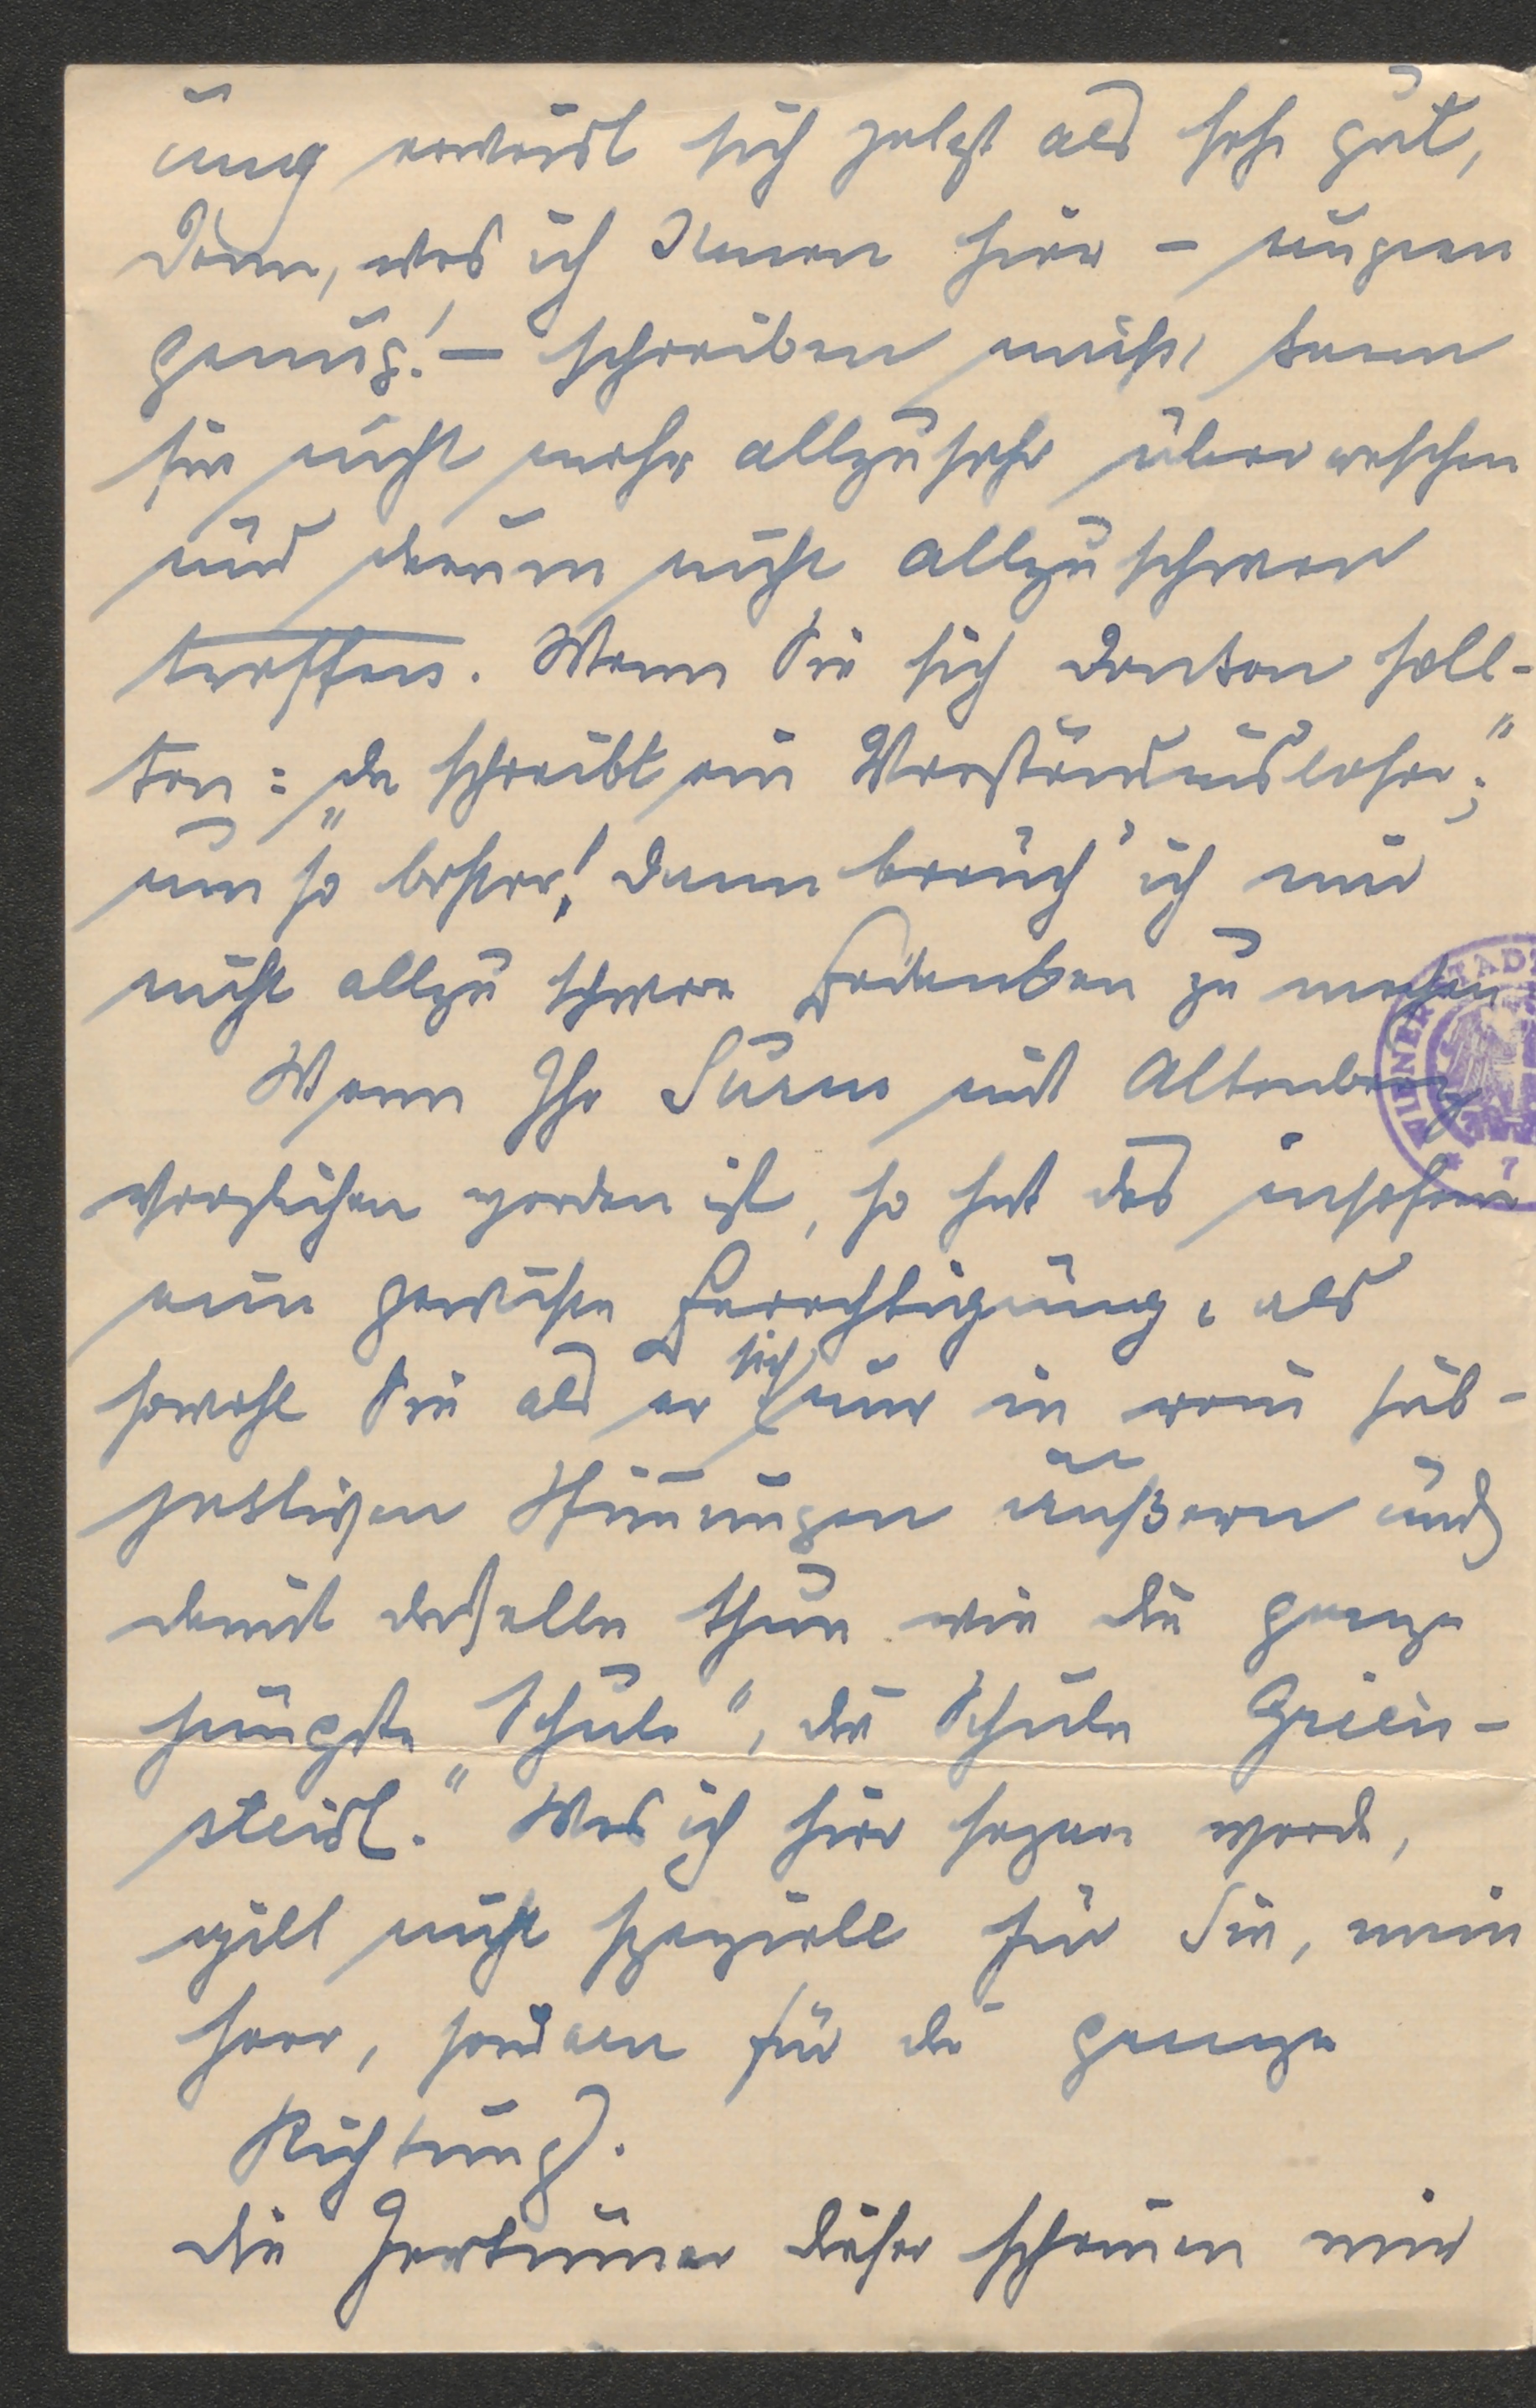 ung erweist sich zuletzt als sehr gut,
Denn, was ich Ihnen hier – ungern
genug! – schreiben muß, kann
Sie nicht mehr allzusehr überraschen
und darum nicht allzuschwer
treffen. Wenn Sie sich denken soll-
ten: „da schreibt ein Verständnisloser;“
um so besser! Dann brauch' ich mir
nicht allzu schwere Gedanken zu machen
Wenn Ihr Sturm mit Altenberg
verglichen worden ist, so hat das insofern
eine gewisse Berechtigung, als
sowohl Sie als er sich nur in rein sub-
jektiven Stimmungen äußern und
damit dasselbe thun wie die ganze
jüngste „Schule“, die Schule Grien-
steidl.“ Was ich hier sagen werde,
gilt nicht speziell für Sie, mein
Herr, sondern für die ganze
Richtung.
Die Irrtümer dieser scheinen mir
WIENER STADT
* 7